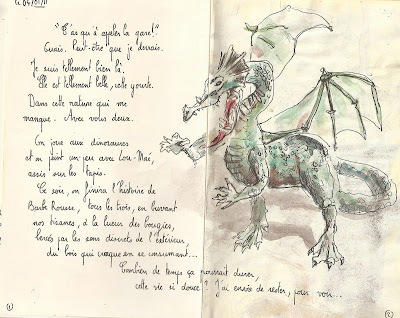 Le 04/01/11
"T'as qu'à appeler la gare!"
Ouais. Peut-être que je devrais.
Je suis tellement bien là.
Elle est tellement belle, cette yourte.
Dans cette nature qui me
manque. Avec vous deux.
On joue aux dinosaures
et on peint un peu avec Lou-Maï,
assis sur les tapis.
Ce soir, on finira l'histoire de
Barbe Rousse, tous les trois, en buvant
nos tisanes, à la lueur des bougies,
bercés par les sons discrets de l'extérieur,
du bois qui craque en se consumant...
Combien de temps ça pourrait durer,
cette vie si douce? J'ai envie de rester, pour voir...
1
2